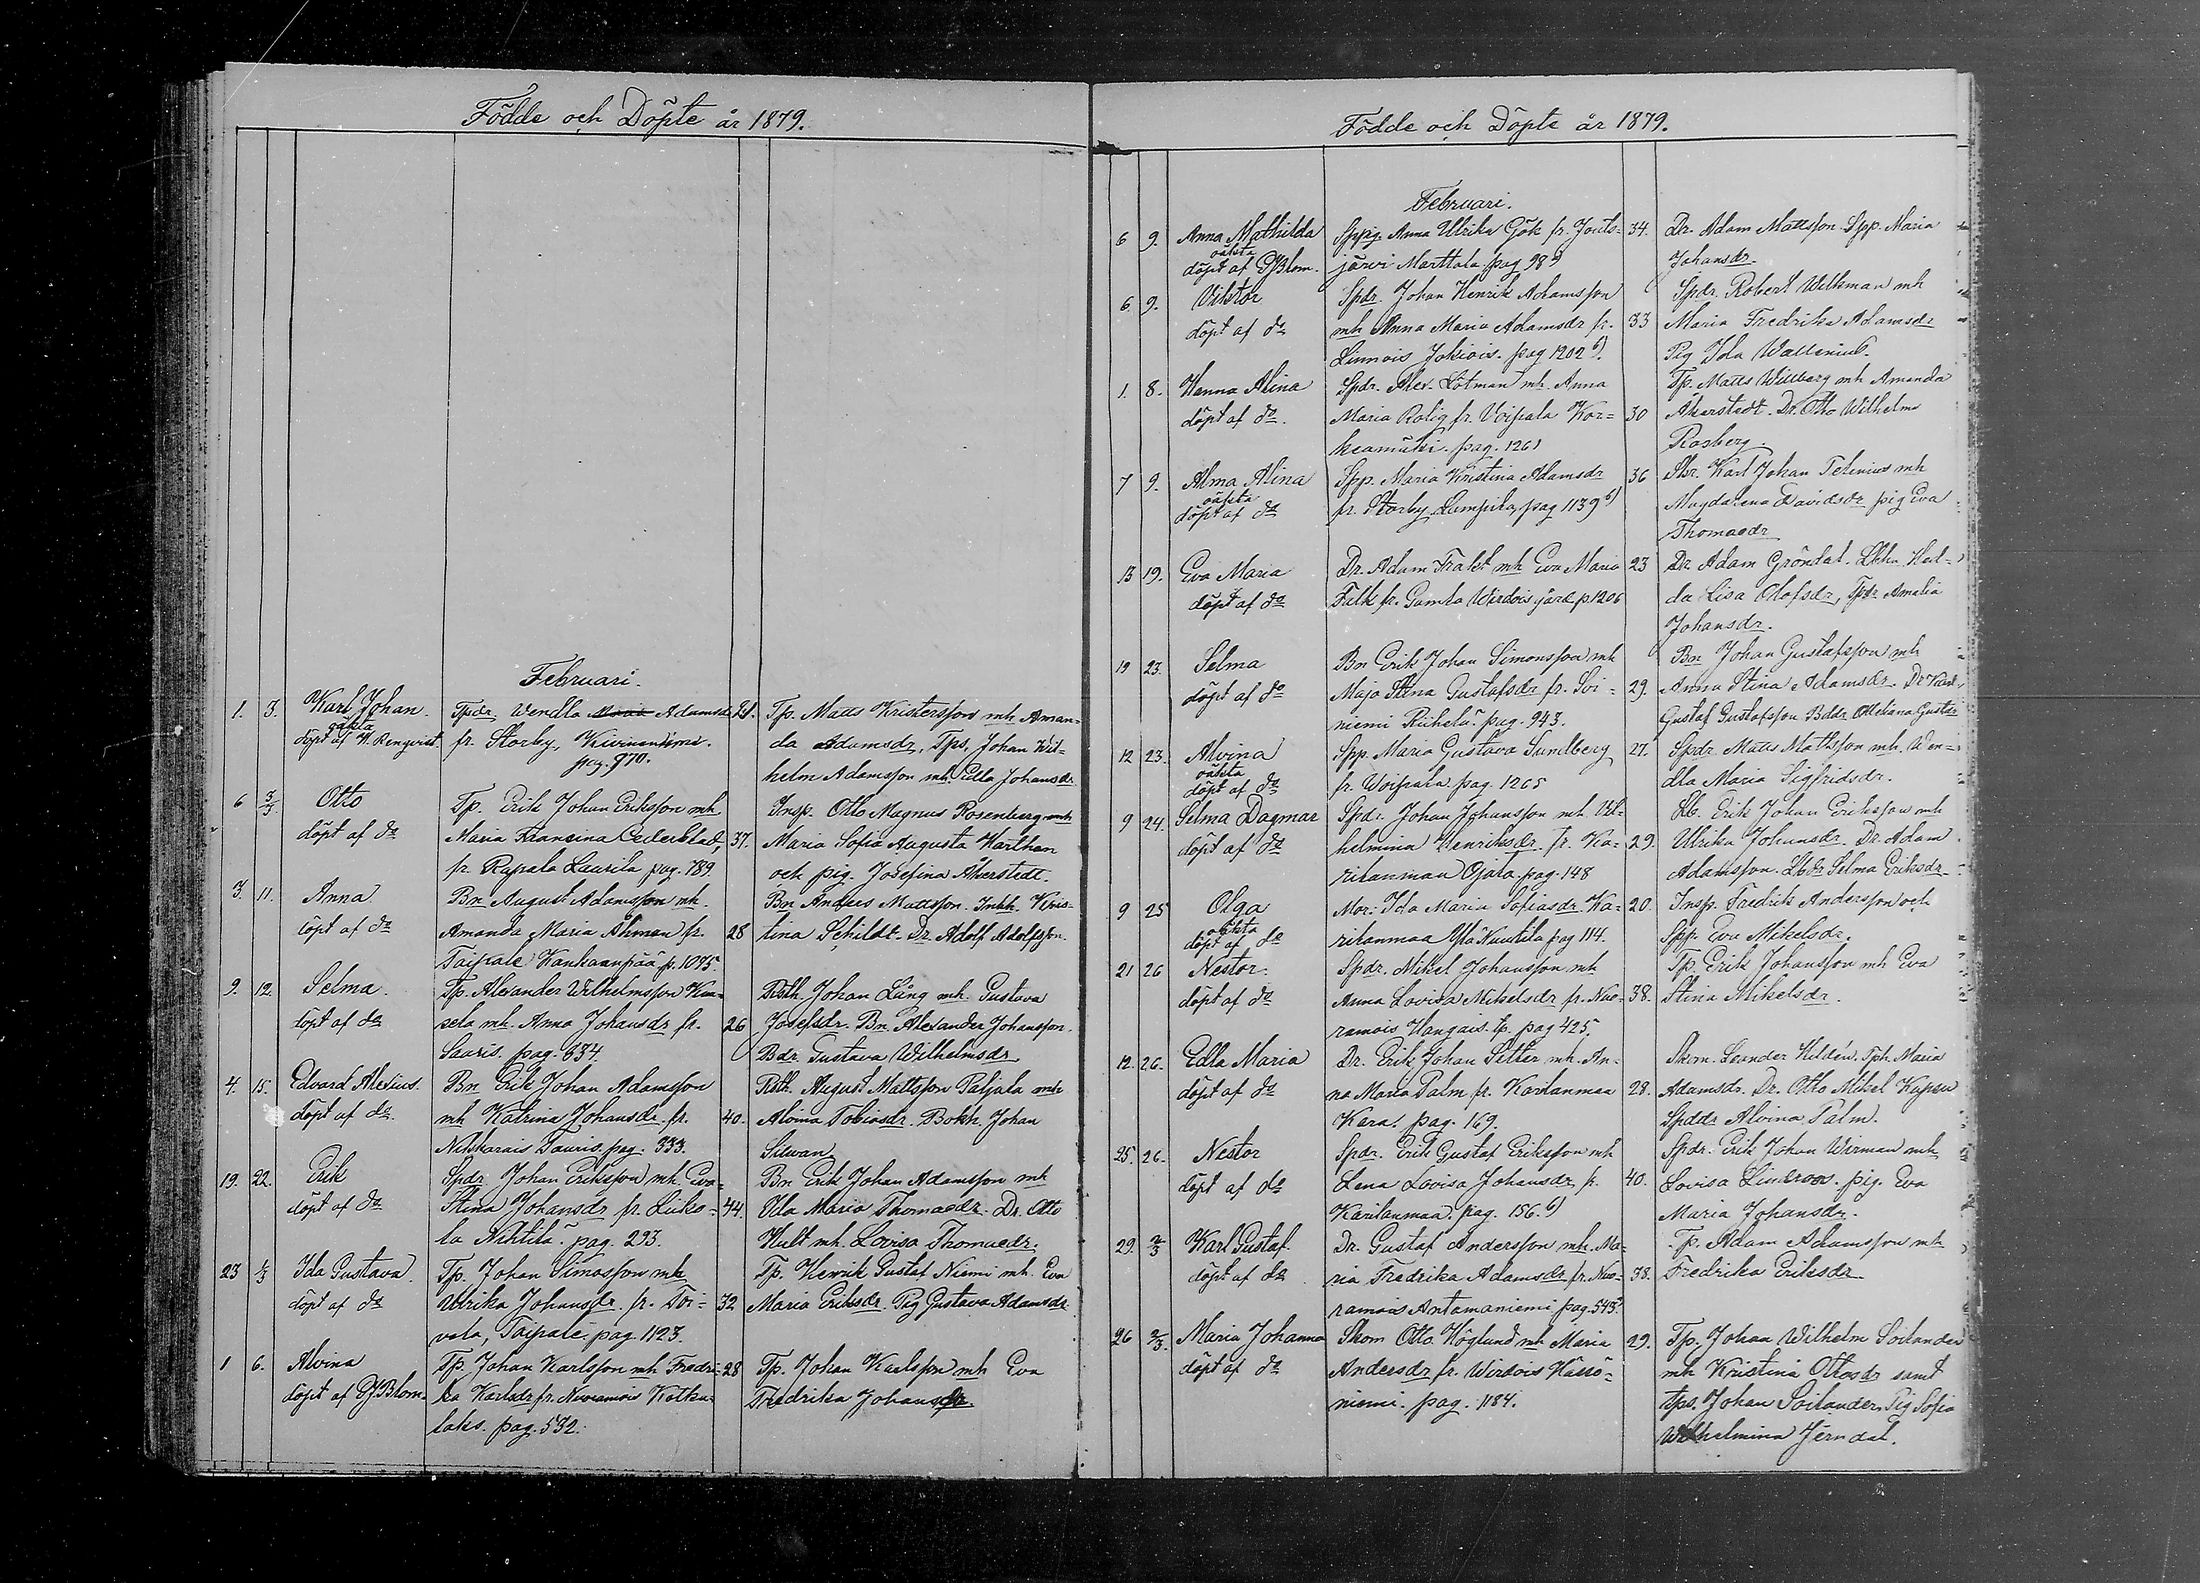 Födde och Döpte år 1879.
Februari.
1. 3. Karl Johan. Tpdr Wendla Maria Adamsdr 21. Tp. Matts Kristersson mh Aman-
oäkta
döpt af H. Renqvist. fr. Storby, Kivinummi. da Adamsdr, Tps. Johan Wil-
pag. 970. helm Adamsson mh Edla Johansdr
6 3/3 Otto Tp. Erik Johan Eriksson mh Insp. Otto Magnus Rosenberg mh
döpt af do Maria Fransina Cederblad, 37. Maria Sofia Augusta Karthen
fr. Rapala Laurila pag. 789. och pig. Josefina Åkerstedt.
3. 11. Anna Bn August Adamsson mh. Bn Anders Mattsson. Inhh. Kris-
döpt af do Amanda Maria Åhman fr. 28 tina Schildt. Dr. Adolf Adolfsson.
Taipale Kankaanpää p. 1095.
9. 12. Selma. Tp. Alexander Wilhelmsson Johan Ling mh. Gustava
döpt af do sela mh. Anna Johansdr fr. 26 Josefsdr. Bn Alexander Johansson.
Sauris. pag. 634. Bdr. Gustava Wilhelmsdr
4. 15. Edvard Alexius. Bn Erik Johan Adamsson Rsth. August Mattsson Paljala mh
döpt af do. mh Katrina Johansdr fr. 40. Alvina Tobiasdr. Bokh. Johan
Nihkarais Tauris. pag. 333. Silwan.
19. 22. Erik Spdr Johan Eriksson mh. Eva Bn Erik Johan Adamsson mh
döpt af do Stina Johansdr fr. Liiko- 44. Ida Maria Thomasdr. Dr. Otto
la Nihtilä. pag. 293. Hult mh. Lovisa Thomasdr.
23 1/3 Ida Gustava. Tp. Johan Simosson mh Tp. Henrik Gustaf Niemi mh. Eva
döpt af do Ulrika Johansdr. fr. Toi- 32 Maria Eriksdr. Pig Gustava Adamsdr.
vola, Taipale. pag. 1123.
1 6. Alvina Tp. Johan Karlsson mh Fredri- 28 Tp. Johan Karlsson mh Eva
döpt af Blom. ka Karlsdr fr. Nuoramois Kotka- Fredrika Johansdr.
laks. pag. 532.
Födde och Döpte år 1879.
Februari.
6 9. Anna Mathilda Sppig. Anna Ulrika Gök fr. Jouts- 34. Dr. Adam Mattsson. Spp. Maria
oäkta
döpt af Blom. järvi Marttala pag 989 Johansdr.
6 9. Viktor Spdr. Johan Henrik Adamsson Spdr. Robert Wilkman mh
döpt af do mh Anna Maria Adamsdr fr. 33 Maria Fredrika Adamsdr
Linnois Jokiois. pag 1202 b). Pig Ida Wallenius.
1. 8. Hanna Alina Spdr. Alex. Lötman mh. Anna Tp. Matts Willberg mh Amanda
döpt af do. Maria Rolig fr. Voipala Kor- 30 Åkerstedt. Dr. Otto Wilhelm
keamäki. pag. 1261 Rosberg.
7 9. Alma Alina Spp. Maria Kristina Adamsdr 36 Skr. Karl Johan Telenius mh
oäkta
döpt af do fr. Storby Lumpila, pag 1139 b) Magdalena Davidsdr pig Eva
Thomasdr
13 19. Eva Maria Dr. Adam Frakt mh Eva Maria 23 Dr Adam Gröndal. Hul-
döpt af do Falk fr. Gamla Wirdois gård p. 1206 da Lisa Olofsdr, Tpdr Amalia
Johansdr.
19 23. Selma Bn Erik Johan Simonsson mh Bn Johan Gustafsson mh
döpt af do Maja Stina Gustafsdr fr. Soi- 29. Anna Stina Adamsdr. Dr Karl
niemi Riihelä. pag. 943. Gustaf Gustafsson Bddr Ottiliana Gustdr
12 23. Alvina Spp. Maria Gustava Sundberg 27. Spdr. Matts Mattsson mh. Wen-
oäkta
döpt af do fr. Woipala pag. 1265 dla Maria Sigfridsdr.
9 24. Selma Dagmar Spdr. Johan Johansson mh Wil- Lb. Erik Johan Eriksson mh
döpt af do helmina Henriksdr. fr. Ka- 29. Ulrika Johansdr. Dr. Adam
rilanmaa Ojala. pag. 148 Adamsson. Lbdr Selma Eriksdr
9 25 Olga Mor: Ida Maria Sofiasdr. Ka- 20. Insp. Fredrik Andersson och
oäkta
döpt af do rilanmaa Yli Nuutila pag 114. Spp. Eva Mikelsdr.
21 26 Nestor. Spdr. Mikel Johansson mh Tp. Erik Johansson mh Eva
döpt af do Anna Lovisa Mikelsdr fr. Nuo- 38. Stina Mikelsdr.
ramois Hangais. tp. pag 425.
12. 26. Edla Maria Dr. Erik Johan Seller mh. An- Skom. Leander Hildén. Tph. Maria
döpt af do na Maria Palm fr. Karilanmaa 28. Adamsdr. Dr. Otto Mikel
Kara. pag. 169. Spddr Alvina Palm.
25. 26. Nestor Spdr. Erik Gustaf Eriksson mh Spdr. Erik Johan Wirman mh
döpt af do Lena Lovisa Johansdr fr. 40. Lovisa Lindroos. pig. Eva
Karilanmaa. pag. 156. b) Maria Johansdr.
29. 2/3 Karl Gustaf. Dr. Gustaf Andersson mh. Ma- Tp. Adam Adamsson mh
döpt af do ria Fredrika Adamsdr fr. Nuo- 38. Fredrika Eriksdr
ramois Antamaniemi pag. 543.
26 2/3. Maria Johanna Skom Otto Höglund mh Maria 29. Tp. Johan Wilhelm Soilander
döpt af do Andersdr fr. Wirdois Hassö- mh Kristina Ottosdr samt
niemi. pag. 1184. tps. Johan Soilander. Pig Sofia
Wilhelmina Jerndal.